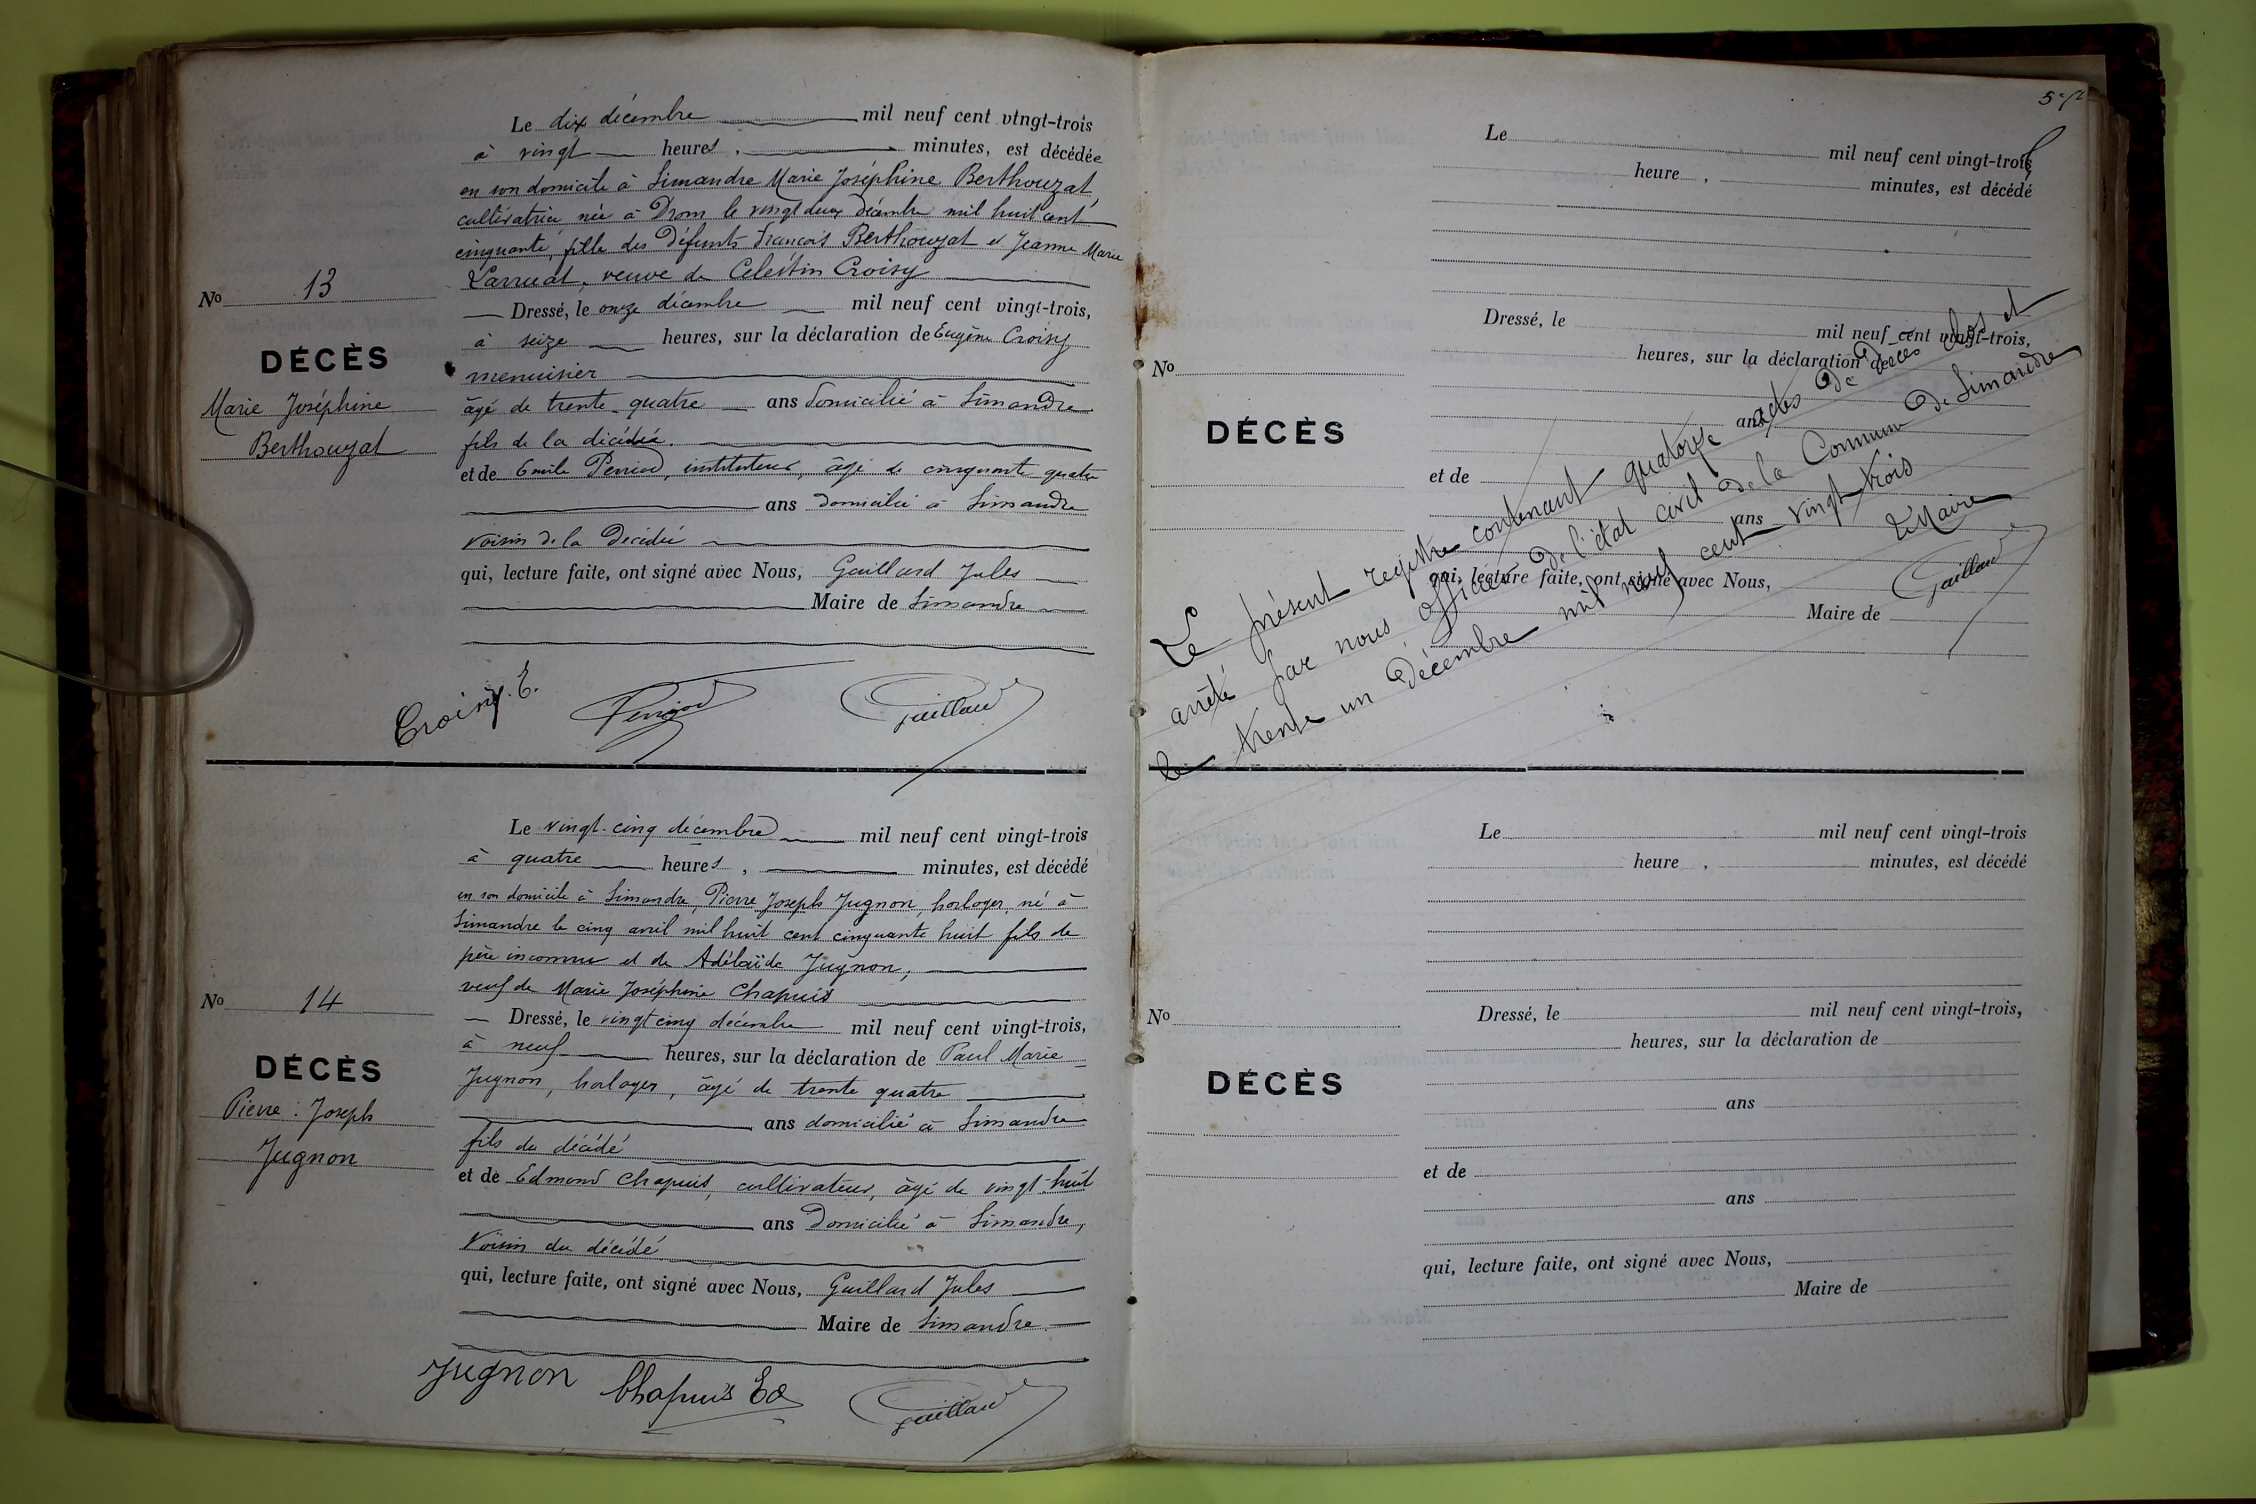 Le dix décembre mil neuf cent vingt-trois
à vingt heures, minutes, est décédée
en son domicile à Simandre Marie Joséphine Berthouzat,
cultivatrice née à Drom le vingt deux décembre mil huit cent
cinquante, fille des défunts François Berthouzat et Jeanne Marie
veuve de Celestin Croisy
No 13
DÉCÈS
Marie Joséphine
Berthouzat
Dressé, le onze décembre mil neuf cent vingt-trois,
à seize heures, sur la déclaration de Eugène Croisy
menuisier
âgé de trente-quatre ans domicilié à Simandre
fils de la décédée.
et de Emile instituteur, âgé de cinquante quatre
ans domicilié à Simandre
voisin de la décédée
qui, lecture faite, ont signé avec Nous, Guillard Jules
Maire de Simandre
Croisy. E.
Guillard
Le vingt-cinq décembre mil neuf cent vingt-trois
à quatre heures, minutes, est décédé
en son domicile à Simandre, Pierre Joseph Jugnon, horloger, né à
Simandre le cinq avril mil huit cent cinquante huit fils de
père inconnu et de Adélaïde Jugnon,
veuf de Marie Joséphine Chapuis
No 14
DÉCÈS
Pierre Joseph
Jugnon
Dressé, le vingt cinq décembre mil neuf cent vingt-trois,
à neuf heures, sur la déclaration de Paul Marie
Jugnon, horloger, âgé de trente quatre
ans domicilié à Simandre
fils du décédé
et de Edmond Chapuis, cultivateur, âgé de vingt-huit
ans domicilié à Simandre,
voisin du décédé
qui, lecture faite, ont signé avec Nous, Guillard Jules
Maire de Simandre
Jugnon Chapuis Ed
Guillard
Le mil neuf cent vingt-trois
heure , minutes, est décédé
No
DÉCÈS
Dressé, le mil neuf cent vingt-trois,
heures, sur la déclaration de
ans
et de
ans
qui, lecture faite, ont signé avec Nous,
Maire de
Le présent registre contenant quatorze actes de décès clos et
arrêté par nous officier de l'état civil de la Commune de Simandre
le trente un décembre mil neuf cent vingt trois
Le Maire
Guillard
Le mil neuf cent vingt-trois
heure , minutes, est décédé
No
DÉCÈS
Dressé, le mil neuf cent vingt-trois,
heures, sur la déclaration de
ans
et de
ans
qui, lecture faite, ont signé avec Nous,
Maire de